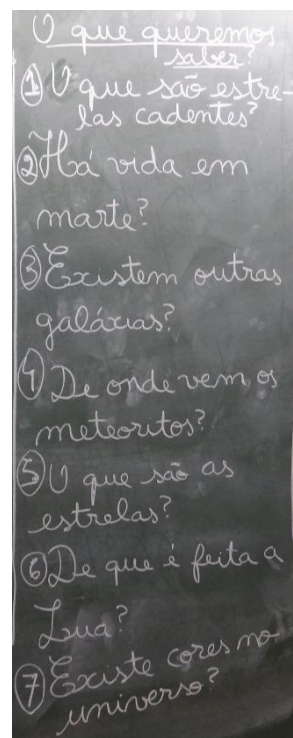 O que queremos
saber?
① O que são estre-
las cadentes?
② Há vida em
marte?
③ Existem outras
galáxias?
④ De onde vem os
meteoritos?
⑤ O que são as
estrelas?
⑥ De que é feita a
Lua?
⑦ Existe cores no
universo?